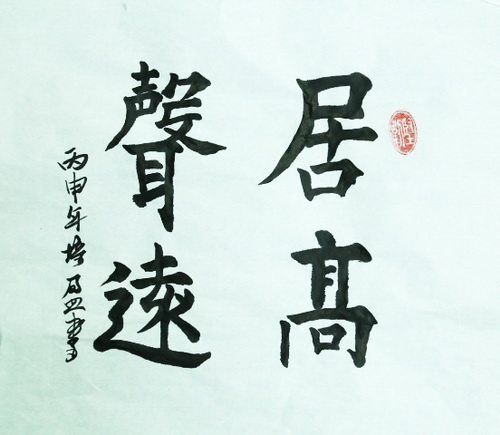 居高
聲遠
丙申年培